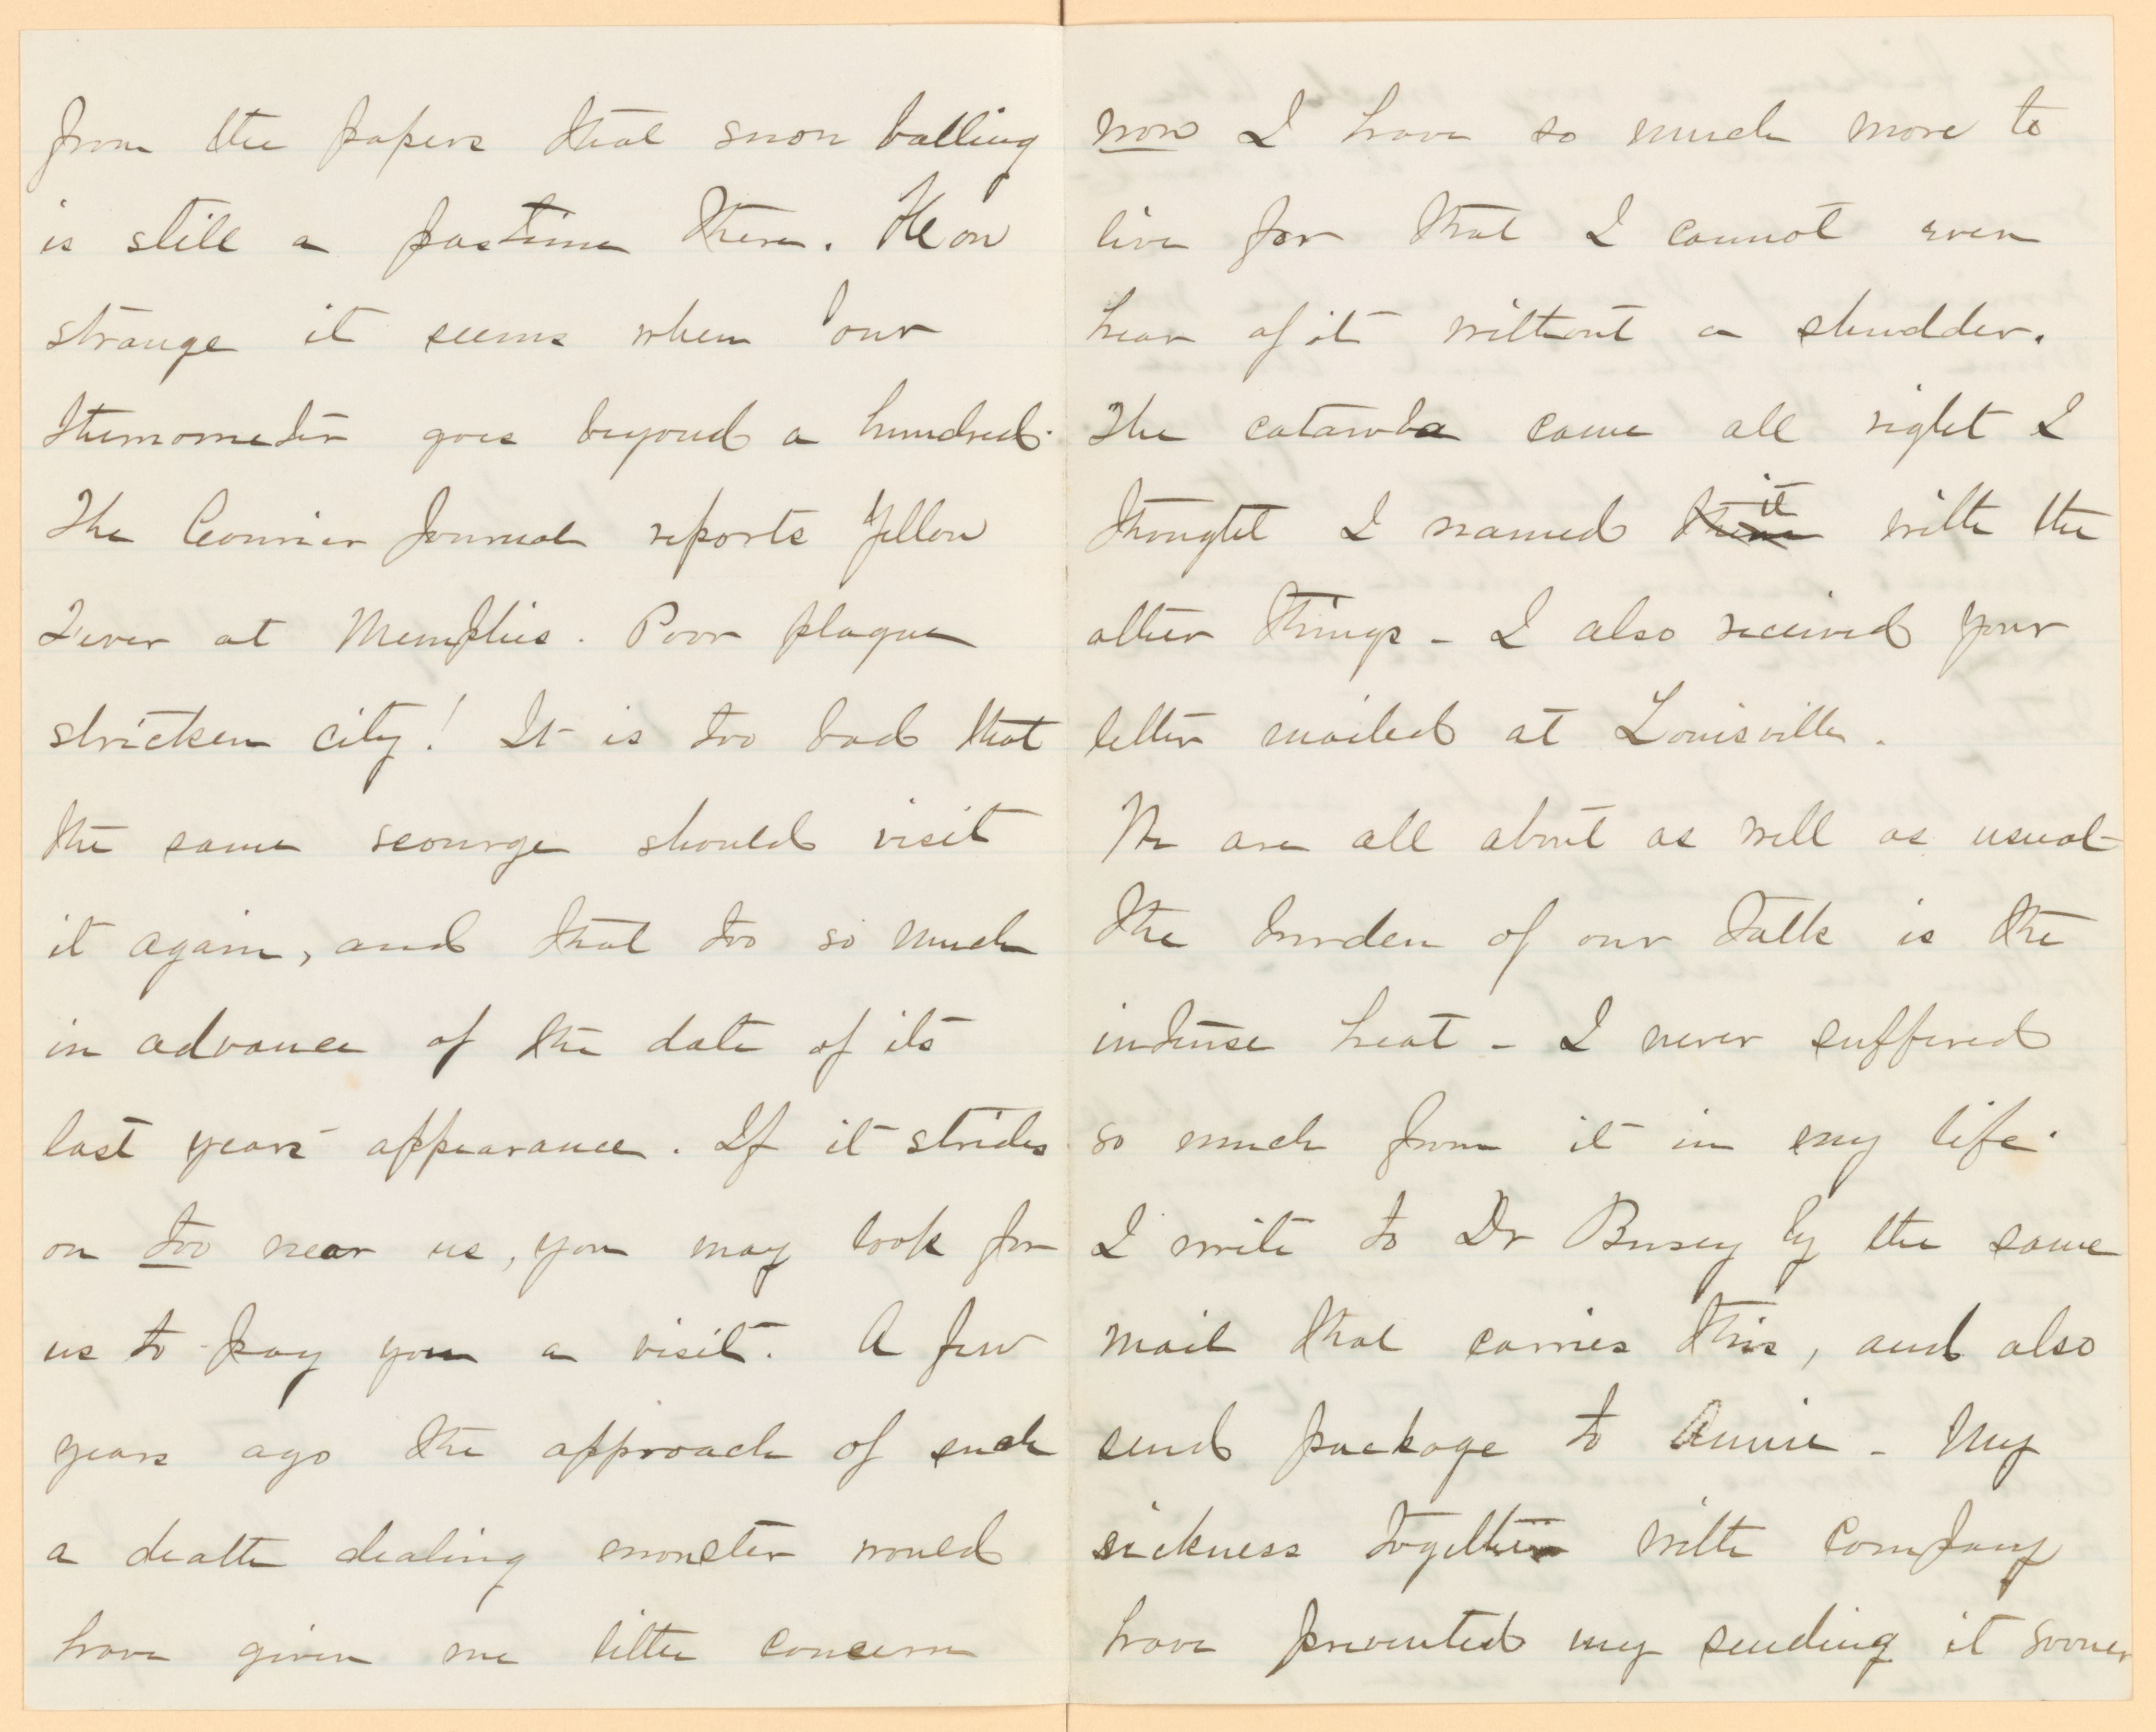 from the papers that snow balling
is still a pastime there. How
strange it seems when our
thermometer goes beyond a hundred.
The Courier Journal reports Yellow
Fever at Memphis. Poor plague
stricken city! It is too bad that
the same scourge should visit
it again, and that too so much
in advance of the date of its
last years appearance. If it strides
on too near us, you may look for
us to pay you a visit. A few
years ago the approach of such
a death dealing monster would
have given me little concern
now I have so much more to
live for that I cannot even
hear of it without a shudder.
The catawba came all right I
thought I named them it with the
other things - I also received your
letter mailed at Louisville.
We are all about as well as usual
The burden of our talk is the
intense heat - I never suffered
so much from it in my life.
I write to Dr Busey by the same
mail that carries this, and also
send package to Annie - My
sickness together with company
have prevented my sending it sooner